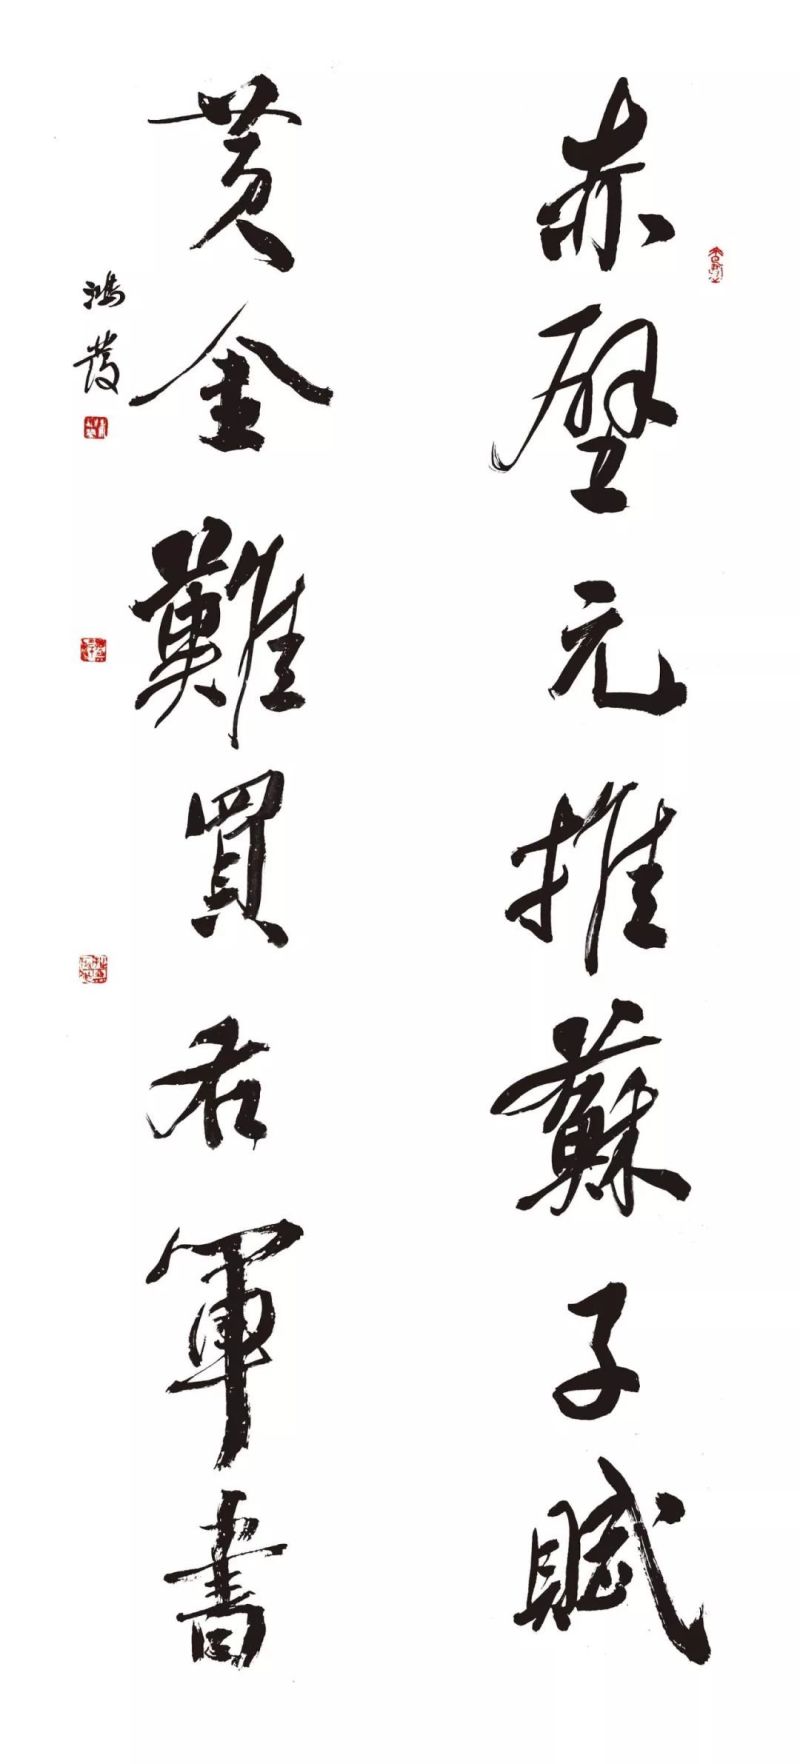 赤壁元推蘇子賦
黃金難買右軍書
鴻發